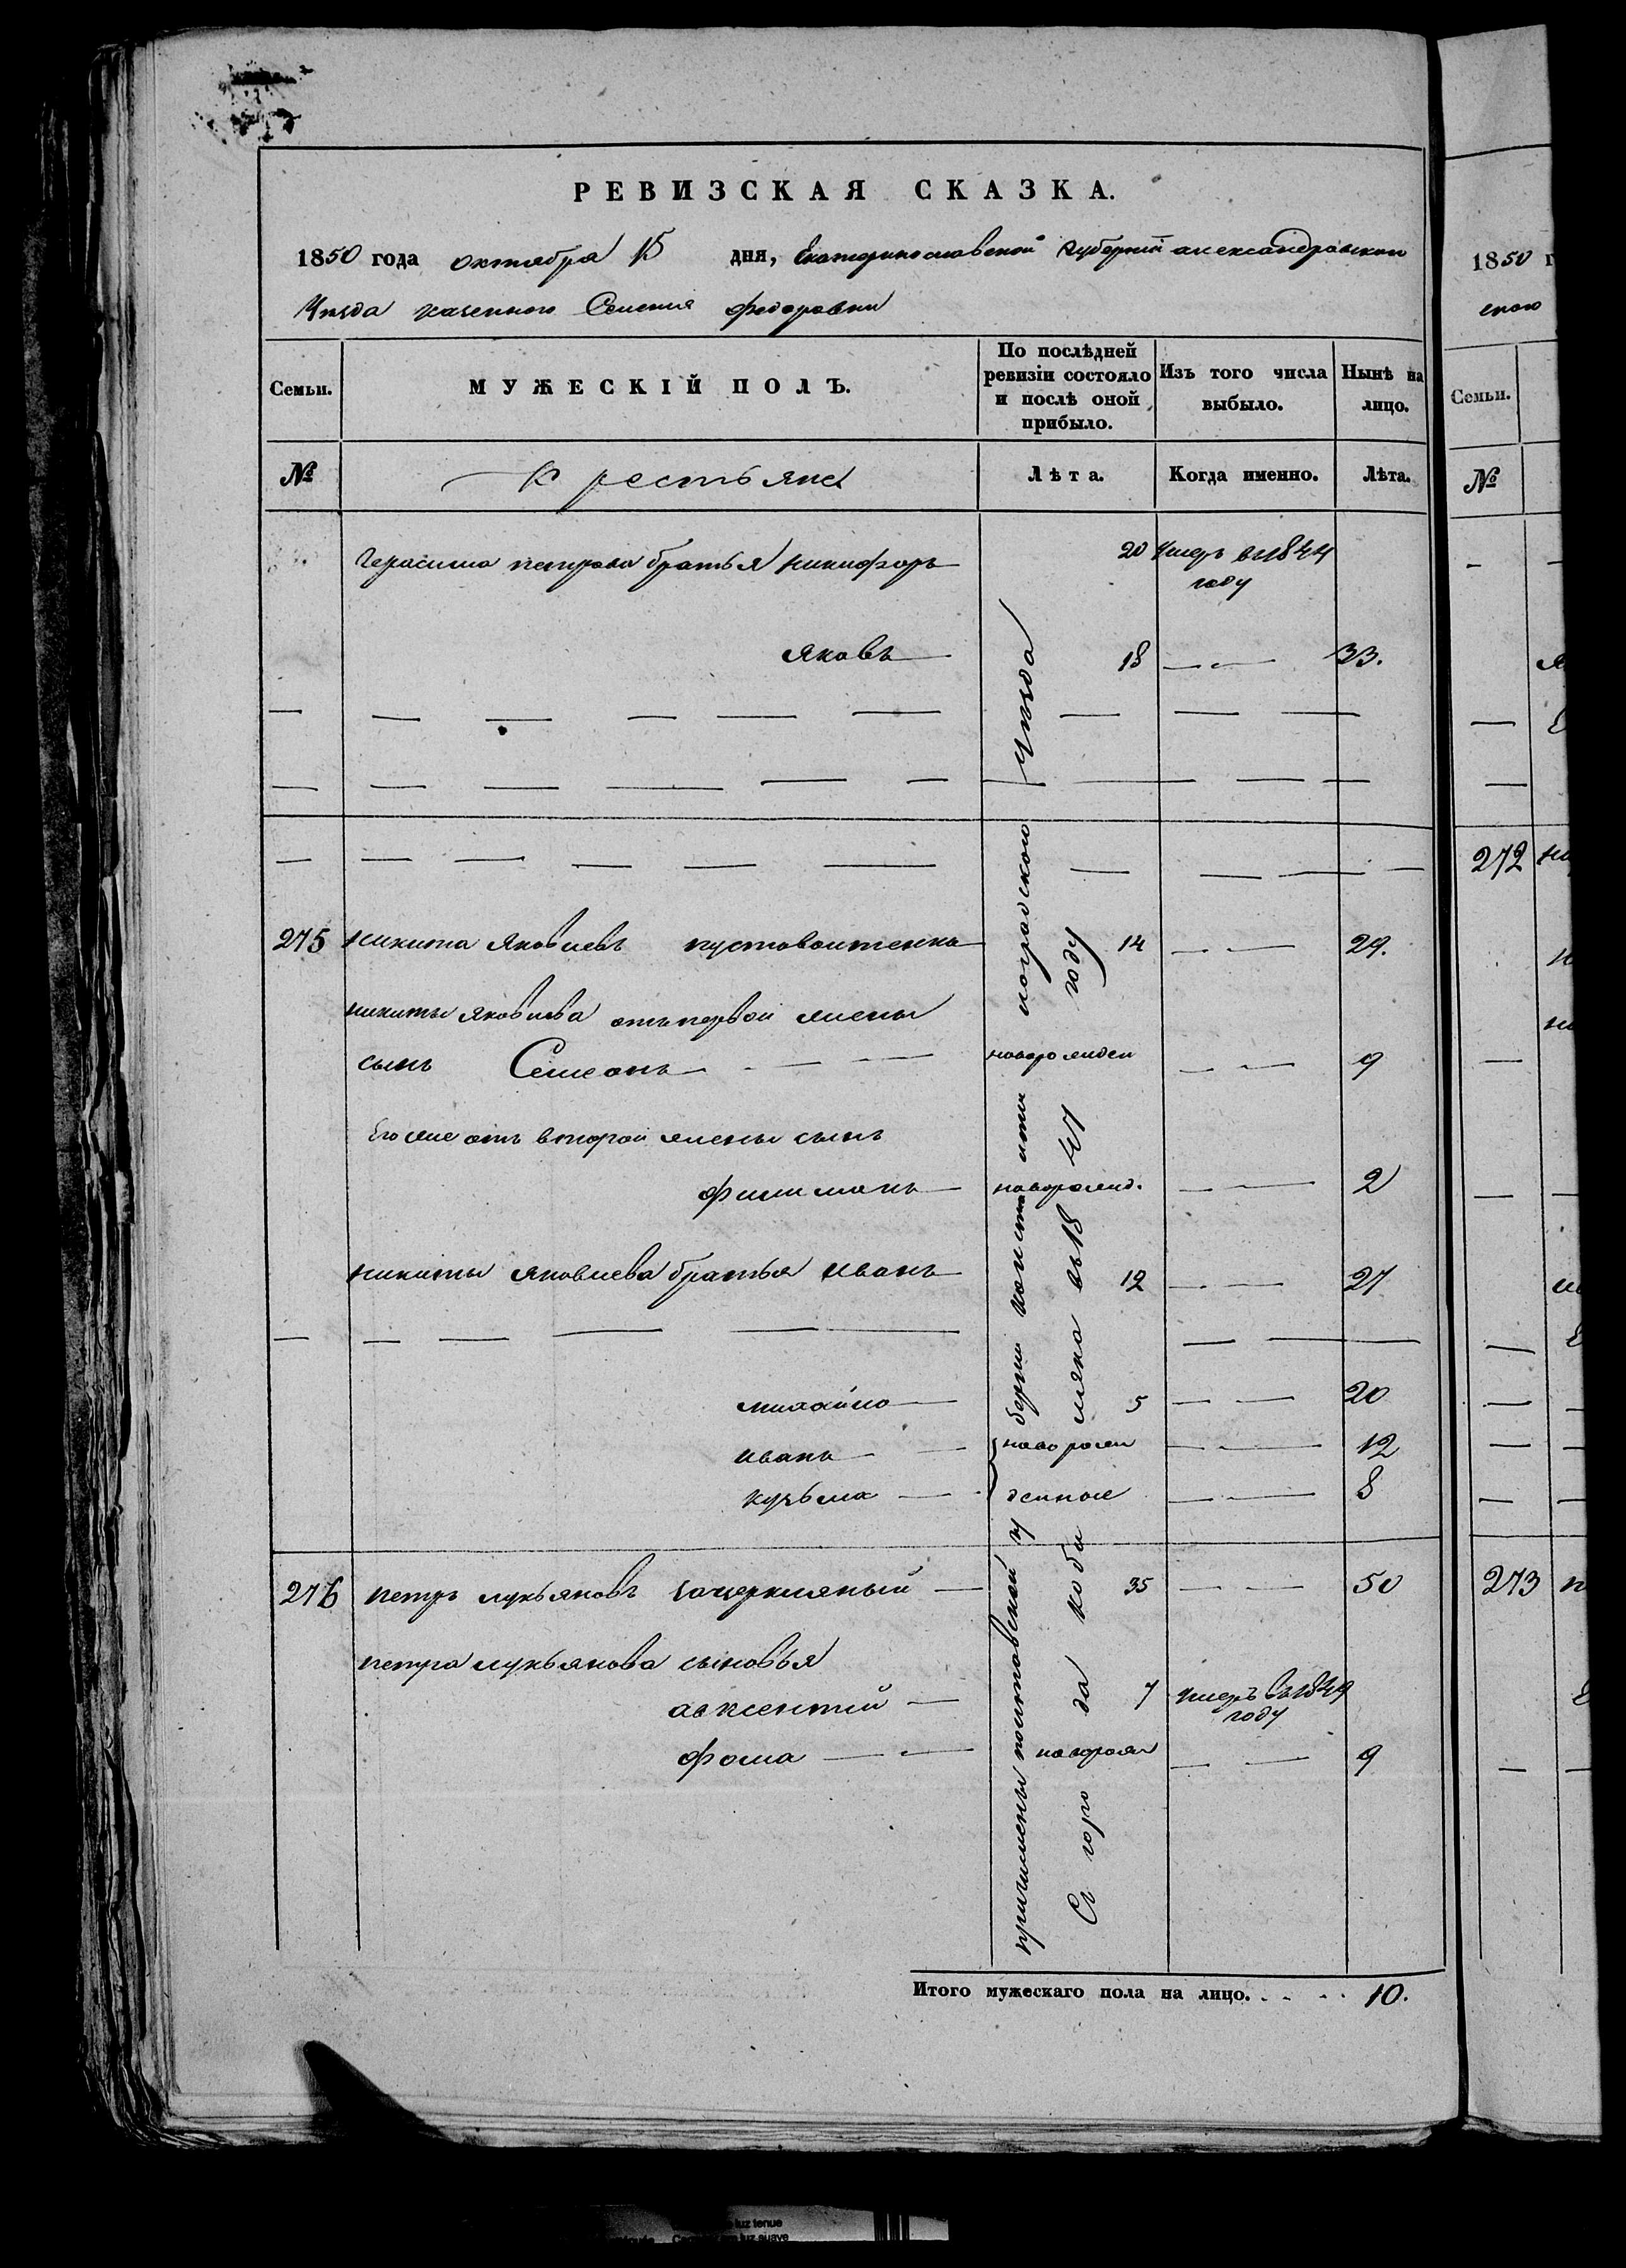 РЕВИЗСКАЯ СКАЗКА.
1850 года октября 15 дня, Екатеринославской губерніи александровскаго
Уезда казенного Селения федоровки
Семьи.
МУЖЕСКІЙ ПОЛЪ.
По послѣдней ревизіи состояло и послѣ оной прибыло.
Изъ того числа выбыло.
Нынѣ на лицо.
№
Крестьяне
Лѣта.
Когда именно.
Лѣта.
Герасима петрова братья никифоръ 20 Умеръ въ 1844 году
яковъ 18 33.
275 никита яковлевъ пустовоитенко 14 29.
никиты яковлева отъ первой жены
сынъ Семенъ новорожден 9
Его же отъ второй жены сынъ
филимонъ новорожд. 2
никиты яковлева братья иванъ 12 27
михайло 5 20
иванъ новорож 12
кузьма денные 8
276 петръ лукьяновъ 35 50
петра лукьянова сыновья
авксентий 7 умеръ въ 1849 году
фома новорож 9
причислены полтавской гу
бернии
уезда
Съ горо да коби
ляка въ 18 41 году
Итого мужескаго пола на лицо. 10.
1850 г
Семьи.
№
272
273